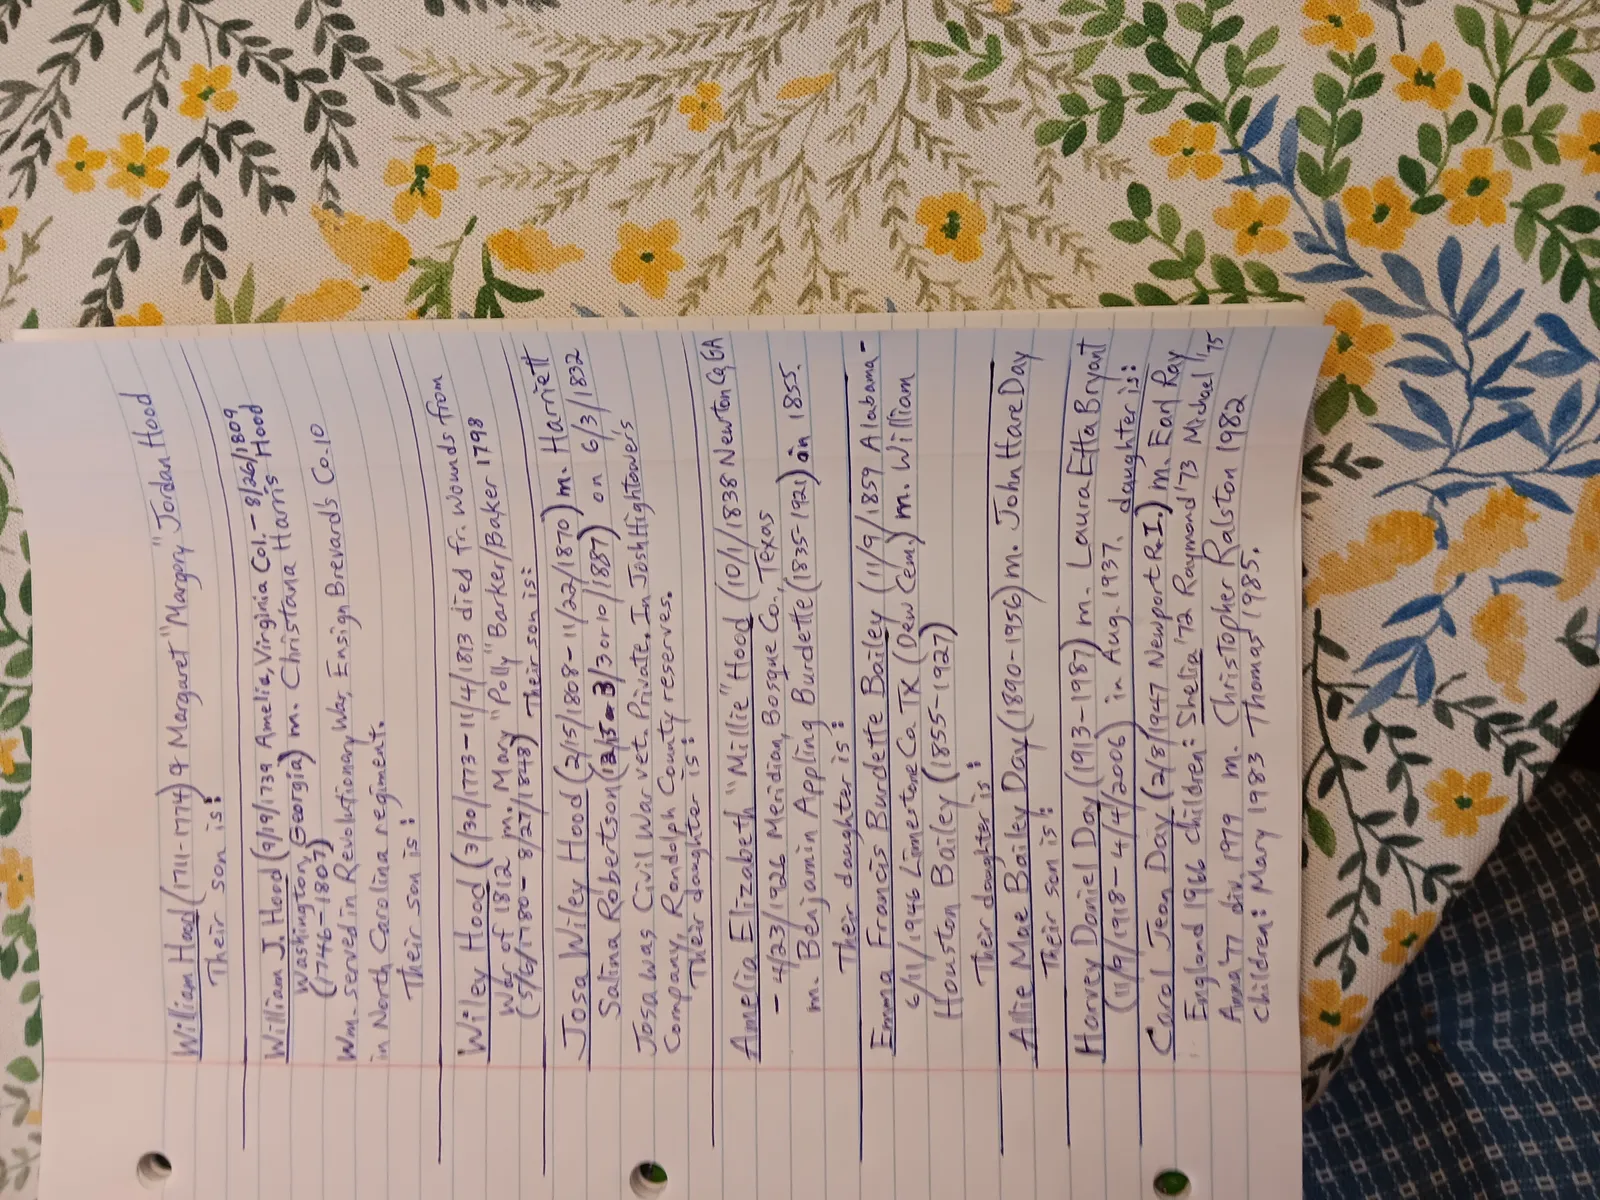 William Hood (1711-1774) & Margaret "Margery" Jordan Hood
Their son is:
William J. Hood (9/19/1739 Amelia, Virginia Col. - 8/26/1809
Washington, Georgia) m. Christana Harris Hood
(1746-1807)
Wm. served in Revolutionary War, Ensign Brevard's Co. 10
in North Carolina regiment.
Their son is:
Wiley Hood (3/30/1773 - 11/4/1813 died fr. Wounds from
War of 1812 m. Mary "Polly" Barker/Baker 1798
(5/6/1780 - 8/27/1848) Their son is:
Josa Wiley Hood (2/15/1808 - 11/22/1870) m. Harriett
Salina Robertson (12/15 - 3/3 or 10/1887) on 6/3/1832
Josa was Civil War vet. Private. In Josh Hightower's
Company, Randolph County reserves.
Their daughter is:
Amelia Elizabeth "Millie" Hood (10/1/1838 Newton Co, GA
- 4/23/1926 Meridian, Bosque Co., Texas
m. Benjamin Appling Burdette (1835-1921) in 1855.
Their daughter is:
Emma Francis Burdette Bailey (11/9/1859 Alabama -
6/11/1946 Limestone Co. TX (Dew Cem) m. William
Houston Bailey (1855-1927)
Their daughter is:
Allie Mae Bailey Day (1890-1956) m. John Hare Day
Their son is:
Harvey Daniel Day (1913-1987) m. Laura Etta Bryant
(11/9/1918 - 4/4/2006) in Aug. 1937. daughter is:
Carol Jean Day (2/8/1947 Newport R.I.) m. Earl Ray
England 1966 children: Shelia '72 Raymond '73 Michael '75
Anna '77 div. 1979 m. Christopher Ralston 1982
children: Mary 1983 Thomas 1985.